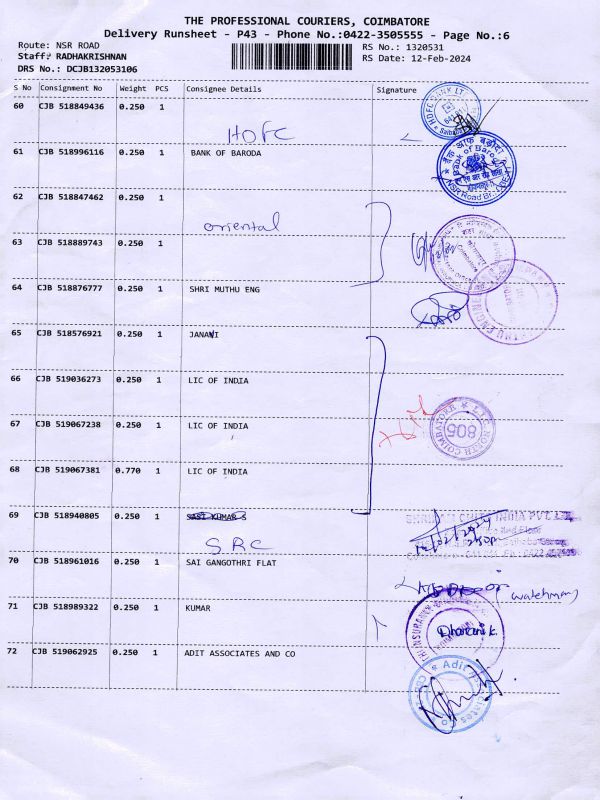 THE PROFESSIONAL COURIERS, COIMBATORE
Delivery Runsheet - P43 - Phone No.:0422-3505555 - Page No.:6
Route: NSR ROAD
RS No.: 1320531
Staff: RADHAKRISHNAN
RS Date: 12-Feb-2024
DRS No.: DCJB132053106
S No Consignment No Weight PCS Consignee Details Signature
60 CJB 518849436 0.250 1
HDFC BANK LT
HDFC
61 CJB 518996116 0.250 1 BANK OF BARODA
बैंक ऑफ बड़ौदा
Bank of Baroda
NSR Road Br.
62 CJB 518847462 0.250 1
oriental
63 CJB 518889743 0.250 1
64 CJB 518876777 0.250 1 SHRI MUTHU ENG
65 CJB 518576921 0.250 1 JANANI
66 CJB 519036273 0.250 1 LIC OF INDIA
67 CJB 519067238 0.250 1 LIC OF INDIA
L.I.C. NORTH COIMBATORE
805
68 CJB 519067381 0.770 1 LIC OF INDIA
69 CJB 518940805 0.250 1 SASI KUMAR S
CHITS INDIA PVT L
12/02/2024
S.R.C
70 CJB 518961016 0.250 1 SAI GANGOTHRI FLAT
(watchman)
71 CJB 518989322 0.250 1 KUMAR
Dharani k.
72 CJB 519062925 0.250 1 ADIT ASSOCIATES AND CO